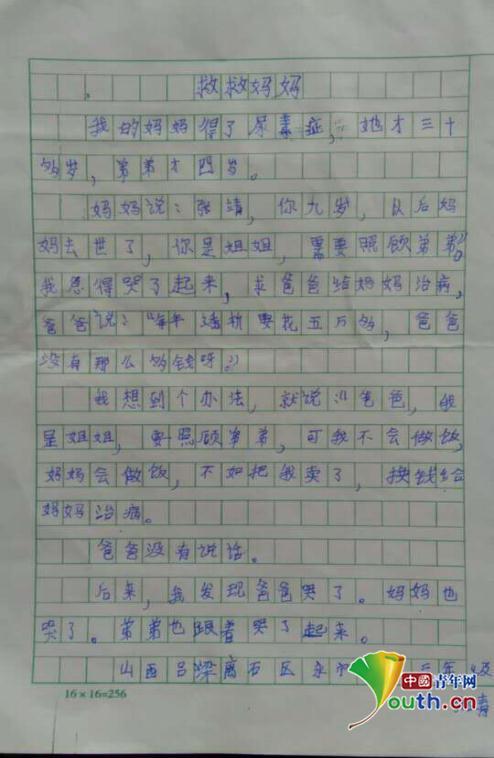 救救妈妈
我的妈妈得了尿毒症，她才三十
多岁，弟弟才四岁。
妈妈说：张靖，你九岁，以后妈
妈去世了，你是姐姐，需要照顾弟弟。”
我急得哭了起来，求爸爸给妈妈治病，
爸爸说：“每年透析要花五万多，爸爸
没有那么多钱呀。”
我想到个办法，就说：“爸爸，我
是姐姐，要照顾弟弟，可我不会做饭，
妈妈会做饭，不如把我卖了，换钱给
妈妈治病。
爸爸没有说话。
后来，我发现爸爸哭了。妈妈也
哭了。弟弟也跟着哭了起来。
山西吕梁离石区永
16×16=256
中國青年网
Youth.cn